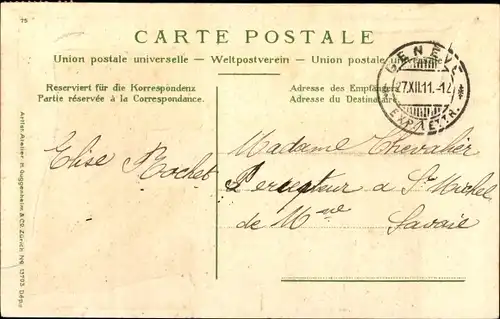 75
CARTE POSTALE
Union postale universelle — Weltpostverein — Union postale universelle
Reserviert für die Korrespondenz
Partie réservée à la Correspondance.
Adresse des Empfängers
Adresse du Destinataire
GENÈVE
27.XII.11.-12
EXP. LETTR.
Elise Rochet
Madame Chevalier
Percepteur a St Michel
de Mne Savoie
Artist. Atelier H. Guggenheim & Co. Zürich No. 13793. Dép.